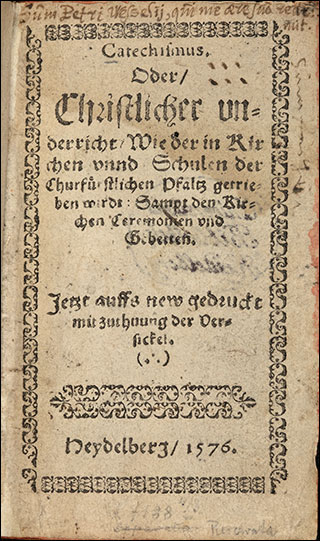 Sum Petri Wesselij, qui me
Catechismus.
Oder/
Christlicher vn-
derricht/ Wie der in Kir
chen vnnd Schulen der
Churfürstlichen Pfaltz getrie-
ben wirdt: Sampt den Kir-
chen Ceremonien vnd
Gebetten.
Jetzt auffs new gedruckt
mit zuthuung der Ver-
sickel.
(∴)
Heydelberg/ 1576.